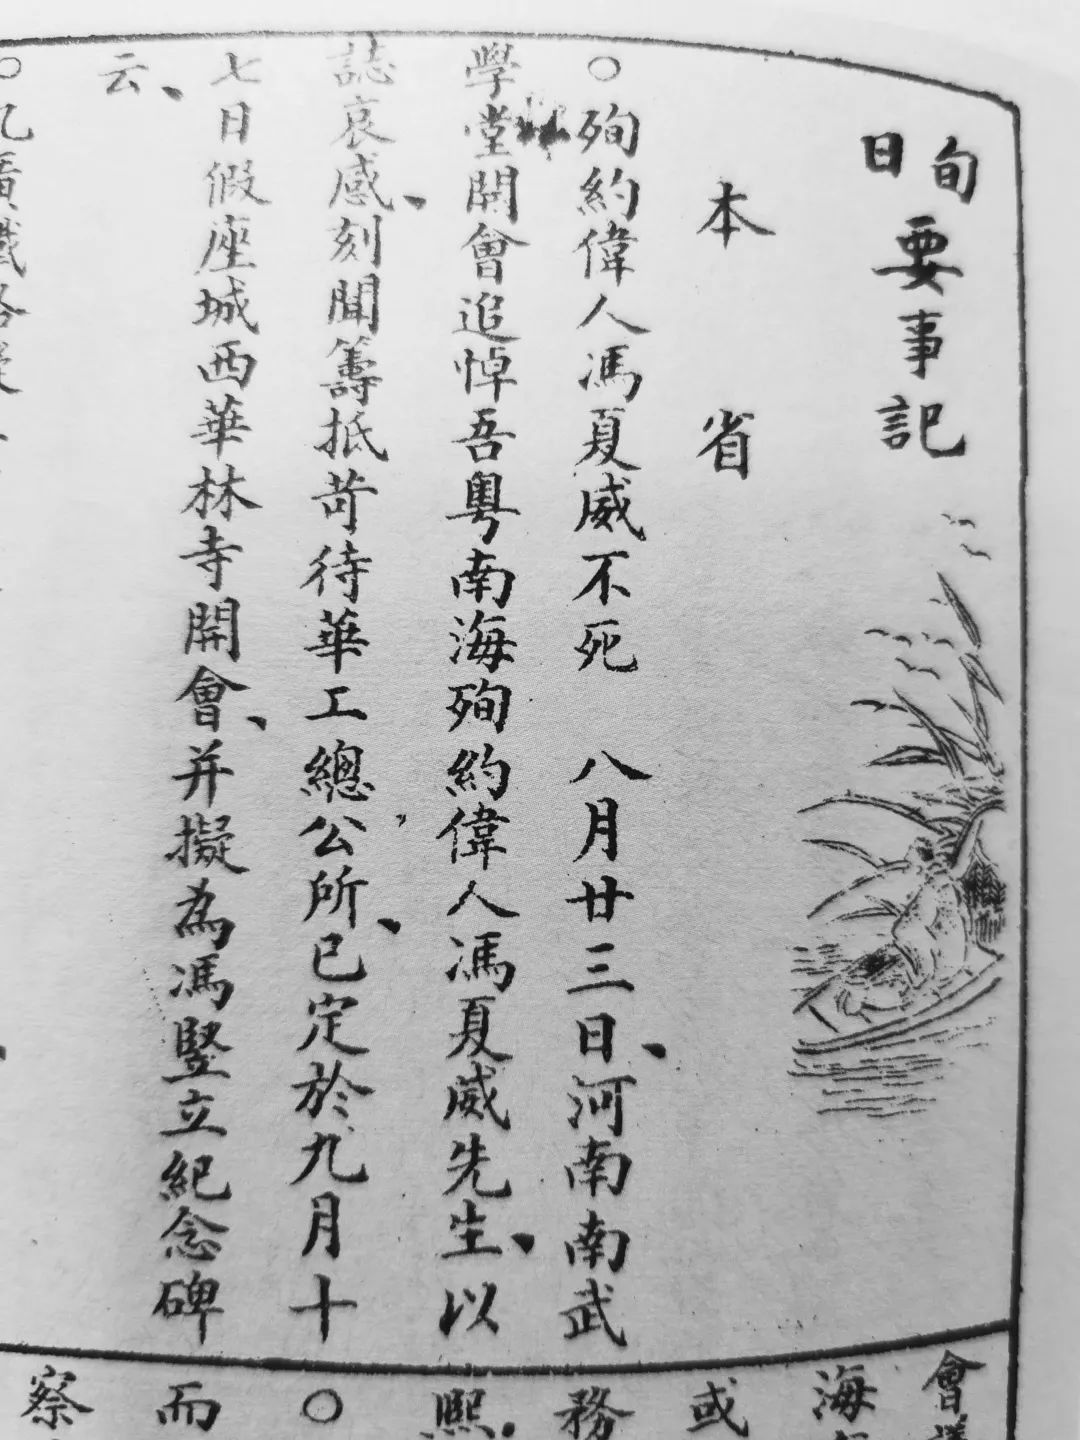 旬日要事記
本省
○殉約偉人馮夏威不死　八月廿三日、河南南武
學堂開會追悼吾粤南海殉約偉人馮夏威先生、以
誌哀感、刻聞籌抵苛待華工總公所、已定於九月十
七日假座城西華林寺開會、并擬為馮豎立紀念碑
云、
會
海
或
務
熙
○
而
察